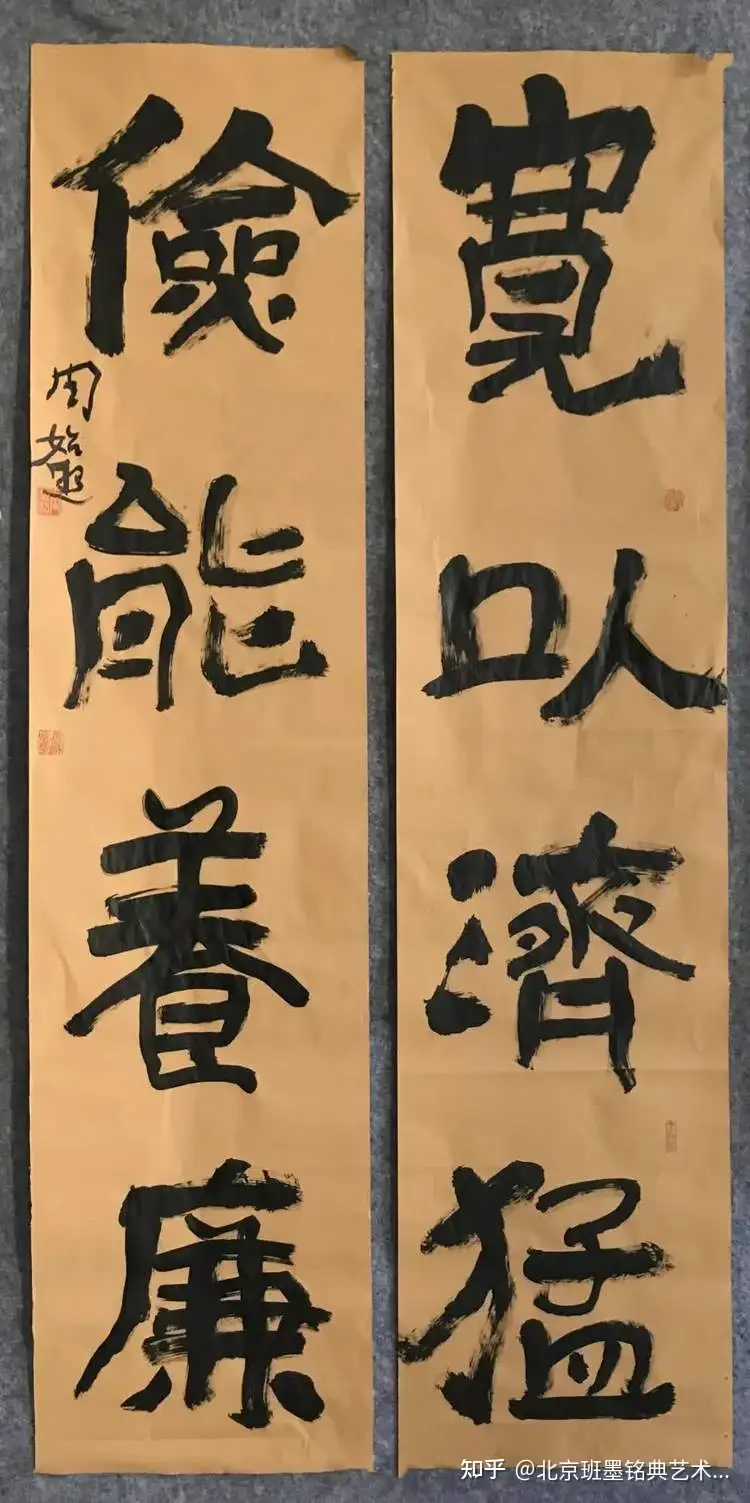 寛以濟猛
儉能養廉
周
知乎 @北京班墨铭典艺术...